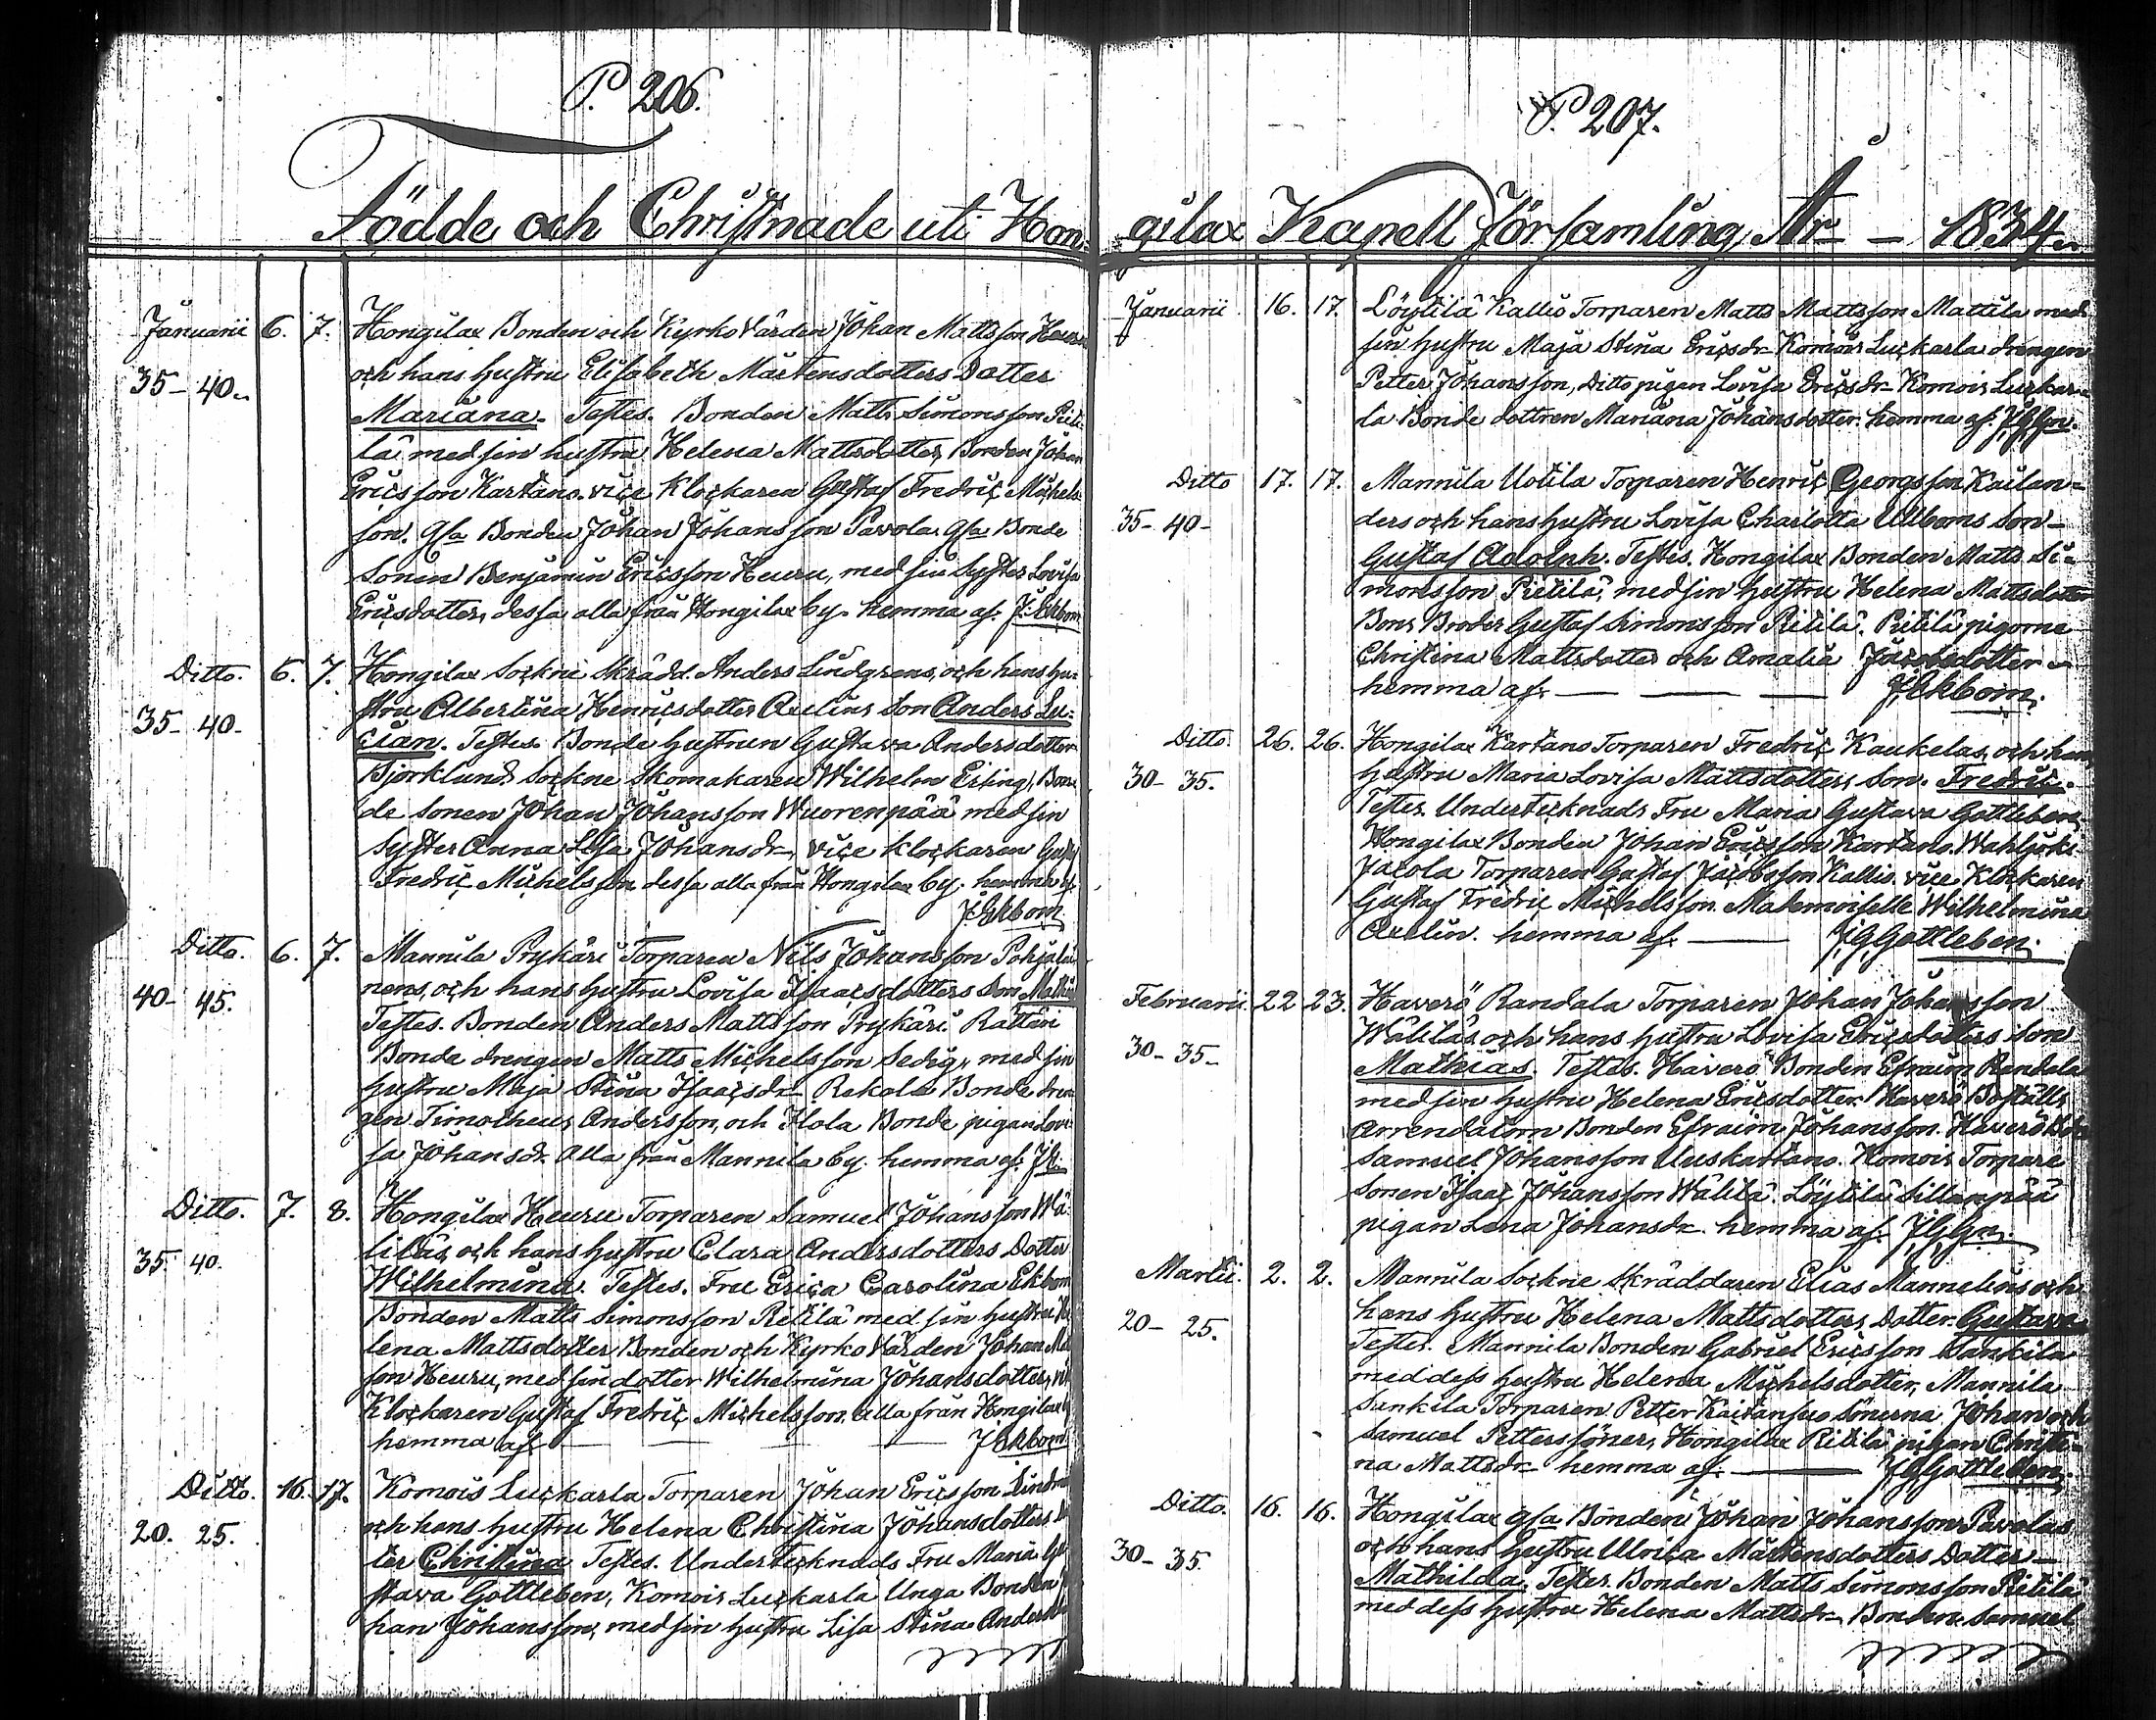 P. 206.
Födde och Christnade uti Hon-
Januarii 6. 7. Hongilax Bonden och Kyrko Värden Johan Mattsson
35-40. och hans hustru Elisabeth Mårtensdotters Dotter
Mariana. Testes. Bonden Matts Simonsson Pieti-
lä med sin hustru Helena Mattsdotter, Bonden Johan
Ericsson Kartano. vice Klockaren Gustaf Fredric Michels-
son. Gla Bonden Johan Johansson Pavola. Gla Bonde
Sonen Benjamin Ericsson Heuru, med sin Syster Lovisa
Ericsdotter, dessa alla från Hongilax by. hemma af. J: Ekbom
Ditto. 6. 7. Hongilax Sockne Skrädd. Anders Lindgrens, och hans hu-
35-40. stru Albertina Henricsdotter Axelins Son Anders Lu-
cian. Testes. Bonde hustrun Gustava Andersdotter
Björklund. Sockne Skomakaren Wilhelm Erling, Bon-
de sonen Johan Johansson Wuorenpää med sin
Syster Anna Lisa Johansdr, vice klockaren Gustaf
Fredric Michelsson dessa alla från Hongilax by. hemma af.
J Ekbom
Ditto. 6. 7. Mannila Prykäri Torparen Nils Johansson Pohjalai-
40-45. nens, och hans hustru Lovisa Isaacsdotters Son
Testes. Bonden Anders Mattsson Prykäri. Rättäri
Bonde drengen Matts Michelsson Sedig, med sin
hustru Maja Stina Isaacsdr. Rekola Bonde dren-
gen Timotheus Andersson, och Ylola Bonde pigan Lovi-
sa Johansdr. Alla från Mannila by. hemma af. JE.
Ditto. 7. 8. Hongilax Heuru Torparen Samuel Johansson Wä-
35. 40. liläs, och hans hustru Clara Andersdotters Dotter
Wilhelmina. Testes. Fru Erica Carolina Ekbom
Bonden Matts Simonsson Pietilä med sin hustru He-
lena Mattsdotter, Bonden och Kyrko Värden Johan
son Heuru, med sin dotter Wilhelmina Johansdotter,
Klockaren Gustaf Fredric Michelsson. alla från Hongilax
hemma af. — — — J Ekbom
Ditto. 16. 17. Komois Luckarla Torparen Johan Ericsson
20. 25. och hans hustru Helena Christina Johansdotters
ter Christina Testes. Undertecknads Fru Maria Gu-
stava Gottleben, Komois Luckarla Unga Bonden
han Johansson, med sin hustru Lisa Stina
P. 207.
gilax Kapell Församling År - 1834.
Januarii. 16. 17. Löytilä Kallio Torparen Matts Mattsson Mattila med
sin hustru Maja Stina Ericsdr. Komois Luckarla drengen
Petter Johansson, Ditto pigan Lovisa Ericsdr. Komois Luckar-
la Bonde dottren Mariana Johansdotter. hemma af. JGGn.
Ditto 17. 17. Mannila Uotila Torparen Henric Georgsson Kailan-
35-40- ders och hans hustru Lovisa Charlotta Ullboms Son-
Gustaf Adolph. Testes. Hongilax Bonden Matts Si-
monsson Pietilä, med sin hustru Helena Mattsdotter
Bons Broder Gustaf Simonsson Pietilä. Pietilä pigorne
Christina Mattsdotter och Amalia Jacobsdotter
hemma af. — — — J Ekbom.
Ditto. 26. 26. Hongilax Kartano Torparen Fredric Kaukelas, och hans
30-35. hustru Maria Lovisa Mattsdotters Son. Fredric.
Testes. Undertecknads Fru Maria Gustava Gottleben
Hongilax Bonden Johan Ericsson Kartano. Wahljoki
Jacola Torparen Gustaf Jacobsson Kallio. vice Klockaren
Gustaf Fredric Michelsson. Mademoiselle Wilhelmina
Axelin. hemma af. — JGGottleben.
Februarii. 22 23. Haverö Randala Torparen Johan Johansson
30-35- Wäliläs och hans hustru Lovisa Ericsdotters Son
Mathias. Testes. Haverö Bonden Efraim Randala
med sin hustru Helena Ericsdotter. Haverö Boställs
Arrendatorn Bonden Efraim Johansson. Haverö
Samuel Johansson Uuskartano. Komois Torpare
Sonen Isaac Johansson Wälilä. Löytilä Sillanpää
pigan Lena Johansdr. hemma af. JGGn.
Martii. 2. 2. Mannila Sockne Skräddaren Elias Mannelins och
20-25. hans hustru Helena Mattsdotters Dotter. Gustava
Testes. Mannila Bonden Gabriel Ericsson Sankila
med dess hustru Helena Michelsdotter, Mannila
Sankila Torparen Petter Kaitansuo Sönerna Johan och
Samuel Petterssöner, Hongilax Pietilä pigan Christi-
na Mattsdr. hemma af. — JGGottleben.
Ditto. 16. 16. Hongilax Gla Bonden Johan Johansson Pavolas
30-35. och hans hustru Ulrica Mårtensdotters Dotter-
Mathilda. Testes. Bonden Matts Simonsson Pietilä
med dess hustru Helena Mattsdr. Bonden Samuel